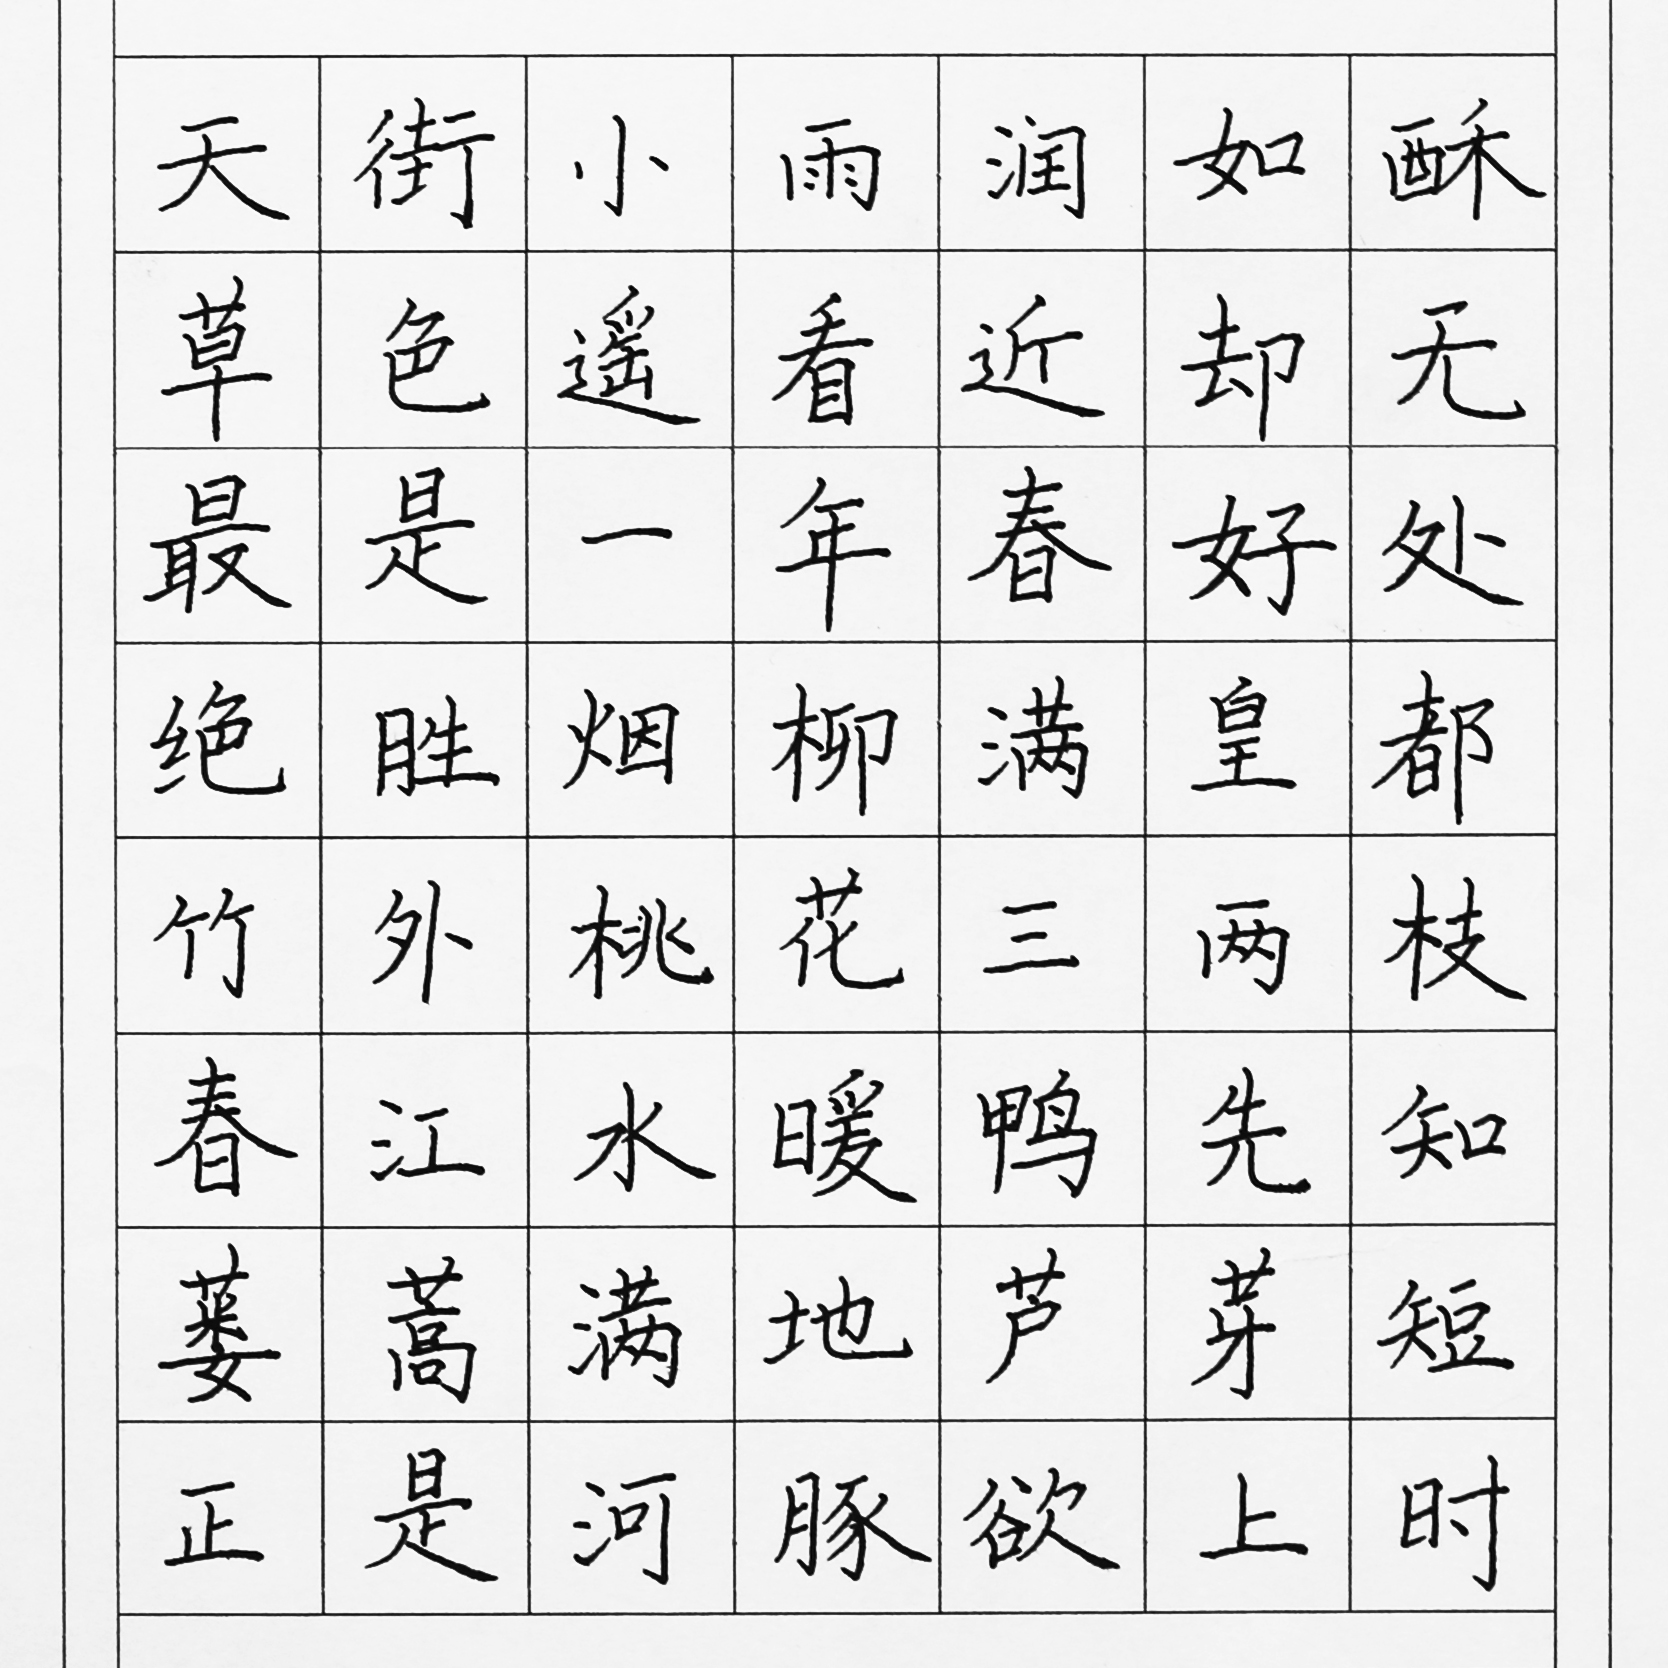 天街小雨润如酥
草色遥看近却无
最是一年春好处
绝胜烟柳满皇都
竹外桃花三两枝
春江水暖鸭先知
蒌蒿满地芦芽短
正是河豚欲上时